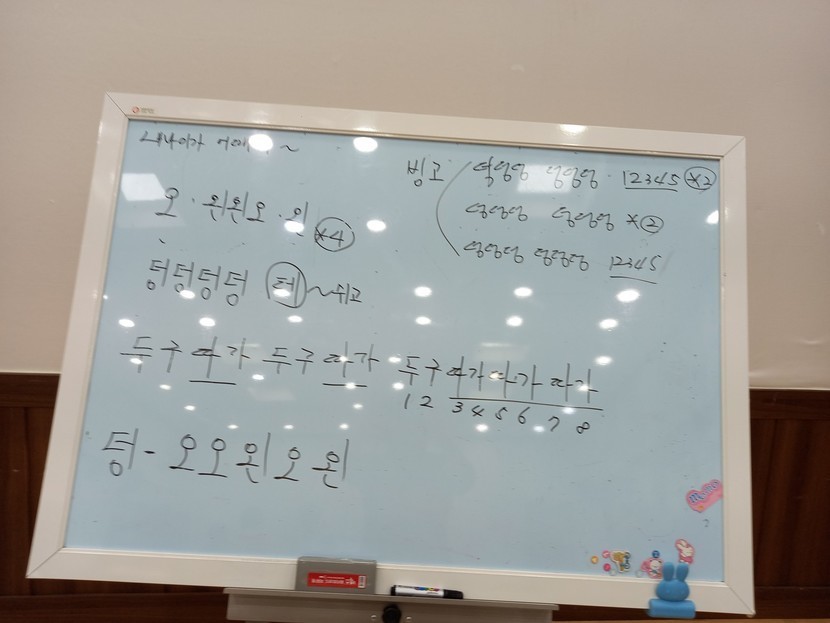 내나이가 어때 ~
오 · 왼왼오 · 왼 *4
텅텅텅텅 테~쉬고
두구따가 두구따가 두구따가따가 따가
1 2 3 4 5 6 7 8
텅 - 오오왼오왼
빙고
덩덩덩 덩덩덩 · 12345 *2
덩덩덩 덩덩덩 *2
덩덩덩 덩덩덩 12345